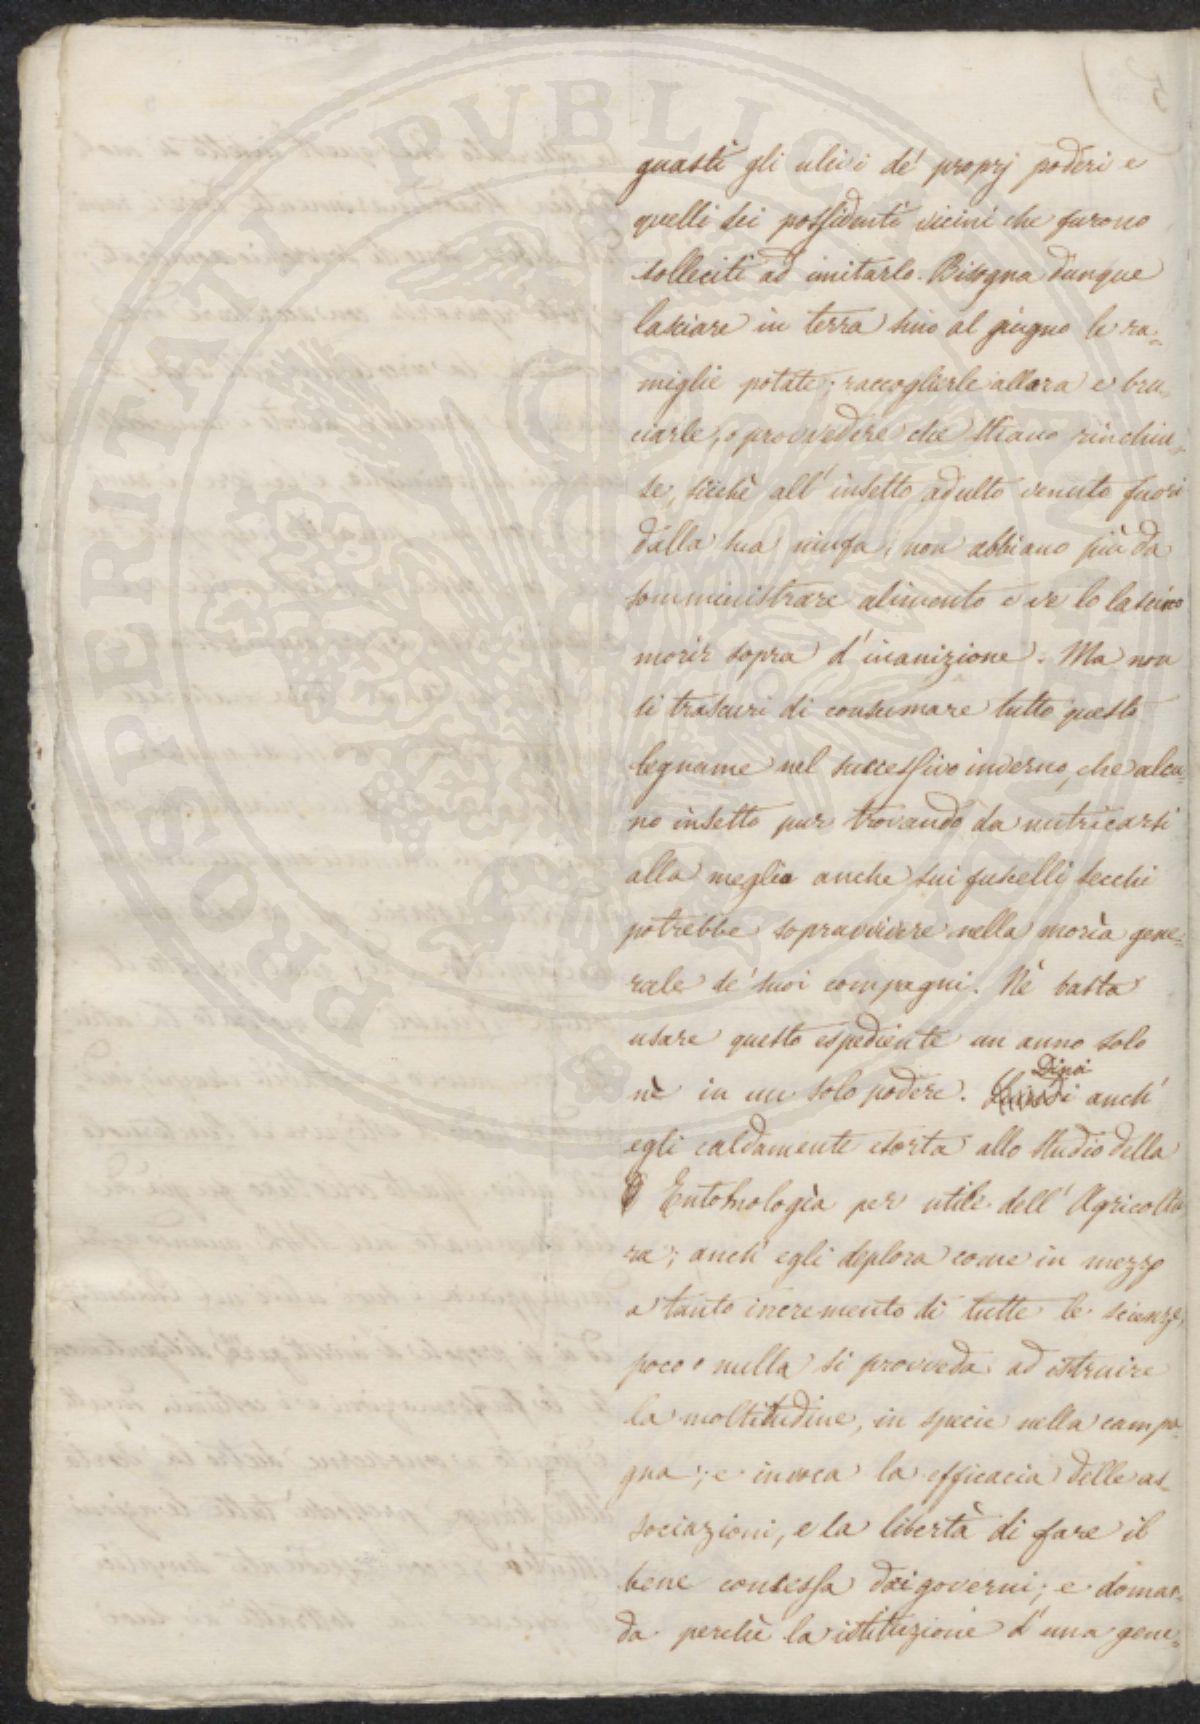 guasti gli ulivi de' proprj poderi e
quelli dei possidenti vicini che furono
solleciti ad imitarlo. Bisogna dunque
lasciare in terra sino al giugno le ra=
miglie potate; raccoglierle allora e bru=
ciarle, o provvedere che stiano rinchiu=
se, sicchè all' insetto adulto venuto fuori
dalla sua ninfa, non abbiano più da
somministrare alimento e ve lo lascino
morir sopra d' inanizione. Ma non
si trascuri di consumare tutto questo
legname nel successivo inverno, che alcu=
no insetto pur trovando da nutricarsi
alla meglio anche sui fuscelli secchi
potrebbe sopravvivere nella morìa gene=
rale de' suoi compagni. Nè basta
usare questo espediente un anno solo
nè in un solo podere. Dinoi anch'
egli caldamente esorta allo studio della
Entomologia per utile dell' Agricoltu
ra; anch' egli deplora come in mezzo
a tanto incremento di tutte le scienze,
poco o nulla si provveda ad istruire
la moltitudine, in specie nella campa=
gna; e invoca la efficacia delle as=
sociazioni, e la libertà di fare il
bene concessa dai governi; e doman=
da perchè la istituzione d' una gene=
PROSPERITATI PUBLICAE